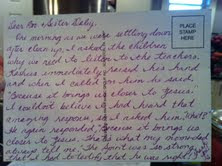 Dear Bro. & Sister Daby,
One morning as we were settling down
after clean up, I asked the children
why we need to listen to the teachers.
immediately raised his hand
and when I called on him he said,
"Because it brings us closer to Jesus.
I couldn't believe I had heard that
amazing response, so I asked him, "What?"
He again responded, "Because it brings us
closer to Jesus." That is what
about The Spirit was so strong
that I had to that he was right
PLACE
STAMP
HERE